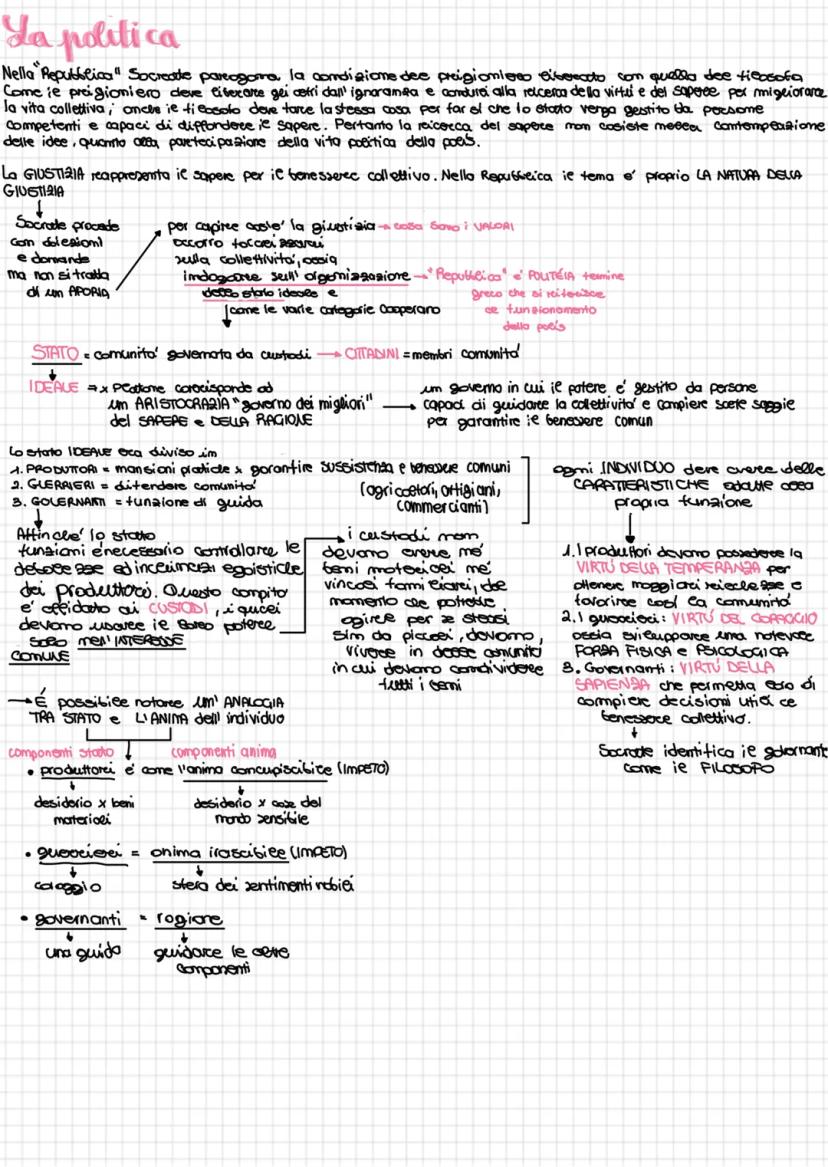 La politica
Nella "Repubblica" Socrate paragona la condizione del prigioniero liberato con quella del filosofo
Come il prigioniero deve liberare gli altri dall'ignoranza e condurli alla ricerca della virtù e del sapere per migliorare
la vita collettiva; anche il filosofo deve fare la stessa cosa per far sì che lo stato venga gestito da persone
competenti e capaci di diffondere il sapere. Pertanto la ricerca del sapere non cosiste nella contemplazione
delle idee, quanto alla partecipazione della vita politica della polis.
La GIUSTIZIA rappresenta il sapere per il benessere collettivo. Nella Repubblica il tema e' proprio LA NATURA DELLA
GIUSTIZIA
Socrate procede
con obiezioni
e domande
ma non si tratta
di un APORIA
per capire cos'e' la giustizia → cosa sono i VALORI
occorre focalizzarsi
sulla collettività, ossia
indagare sull'organizzazione → "Repubblica" e' POLITÉIA termine
dello stato ideale e
come le varie categorie cooperano
greco che si riferisce
al funzionamento
della polis
STATO = comunita' governata da custodi → CITTADINI = membri comunità
IDEALE => x Platone corrisponde ad
un ARISTOCRAZIA "governo dei migliori"
del SAPERE e DELLA RAGIONE
un governo in cui il potere e' gestito da persone
capaci di guidare la collettivita' e compiere scelte saggie
per garantire il benessere comun
Lo stato IDEALE era diviso in
1. PRODUTTORI = mansioni pratiche x garantire sussistenza e benessere comuni
2. GUERRIERI = difendere comunita'
3. GOVERNANTI = funzione di guida
(agricoltori, artigiani,
commercianti)
ogni INDIVIDUO deve avere delle
CARATTERISTICHE adatte alla
propria funzione
Affinche' lo stato
funzioni é necessario controllare le
debolezze ed inclinazioni egoistiche
dei produttori. Questo compito
e' affidato ai CUSTODI, i quali
devono usare il loro potere
solo nell'INTERESSE
COMUNE
i custodi non
devono avere né
beni materiali né
vincoli famigliari, dal
momento che potrebbe
agire per se stessi
sin da piccoli, devono,
vivere in delle comunità
in cui devono condividere
tutti i beni
1. I produttori devono possedere la
VIRTÙ DELLA TEMPERANZA per
ottenere maggiori ricchezze e
favorire così la comunità
2. I guerrieri: VIRTÙ DEL CORAGGIO
ossia sviluppare una notevole
FORZA FISICA e PSICOLOGICA
3. Governanti: VIRTÙ DELLA
SAPIENZA che permetta loro di
compiere decisioni utili al
benessere collettivo.
Socrate identifica il governante
come il FILOSOFO
→ È possibile notare un'ANALOGIA
TRA STATO e L'ANIMA dell'individuo
componenti stato componenti anima
• produttori e' come l'anima concupiscibile (IMPETO)
desiderio x beni
materiali
desiderio x cose del
mondo sensibile
• guerrieri = anima irascibile (IMPETO)
coraggio sfera dei sentimenti nobili
• governanti = ragione
una guida guidare le altre
componenti